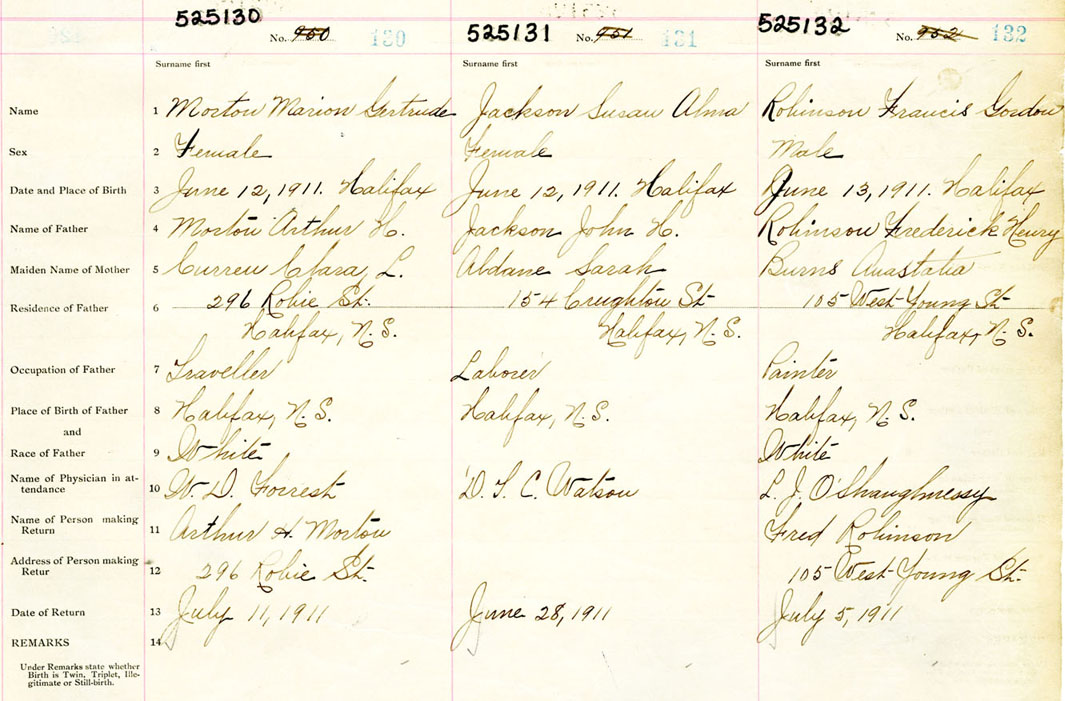 525130 No. 950 130 525131 No. 951 131 525132 No. 952 132
Surname first Surname first Surname first
Name 1 Morton Marion Gertrude Jackson Susan Alma Robinson Francis Gordon
Sex 2 Female Female Male
Date and Place of Birth 3 June 12, 1911. Halifax June 12, 1911. Halifax June 13, 1911. Halifax
Name of Father 4 Morton Arthur H. Jackson John H. Robinson Frederick Henry
Maiden Name of Mother 5 Curren Clara, L. Aldane Sarah Burns Anastatia
Residence of Father 6 296 Robie St. 154 Creighton St 105 West Young St
Halifax, N.S. Halifax, N.S. Halifax, N.S.
Occupation of Father 7 Traveller Laborer Painter
Place of Birth of Father 8 Halifax, N.S. Halifax, N.S. Halifax, N.S.
and
Race of Father 9 White White
Name of Physician in at-
tendance 10 W. D. Forrest D. T. C. Watson L. J. O'Shaughnessy
Name of Person making
Return 11 Arthur H. Morton Fred Robinson
Address of Person making
Retur 12 296 Robie St. 105 West Young St.
Date of Return 13 July 11, 1911 June 28, 1911 July 5, 1911
REMARKS 14
Under Remarks state whether
Birth is Twin, Triplet, Ille-
gitimate or Still-birth.